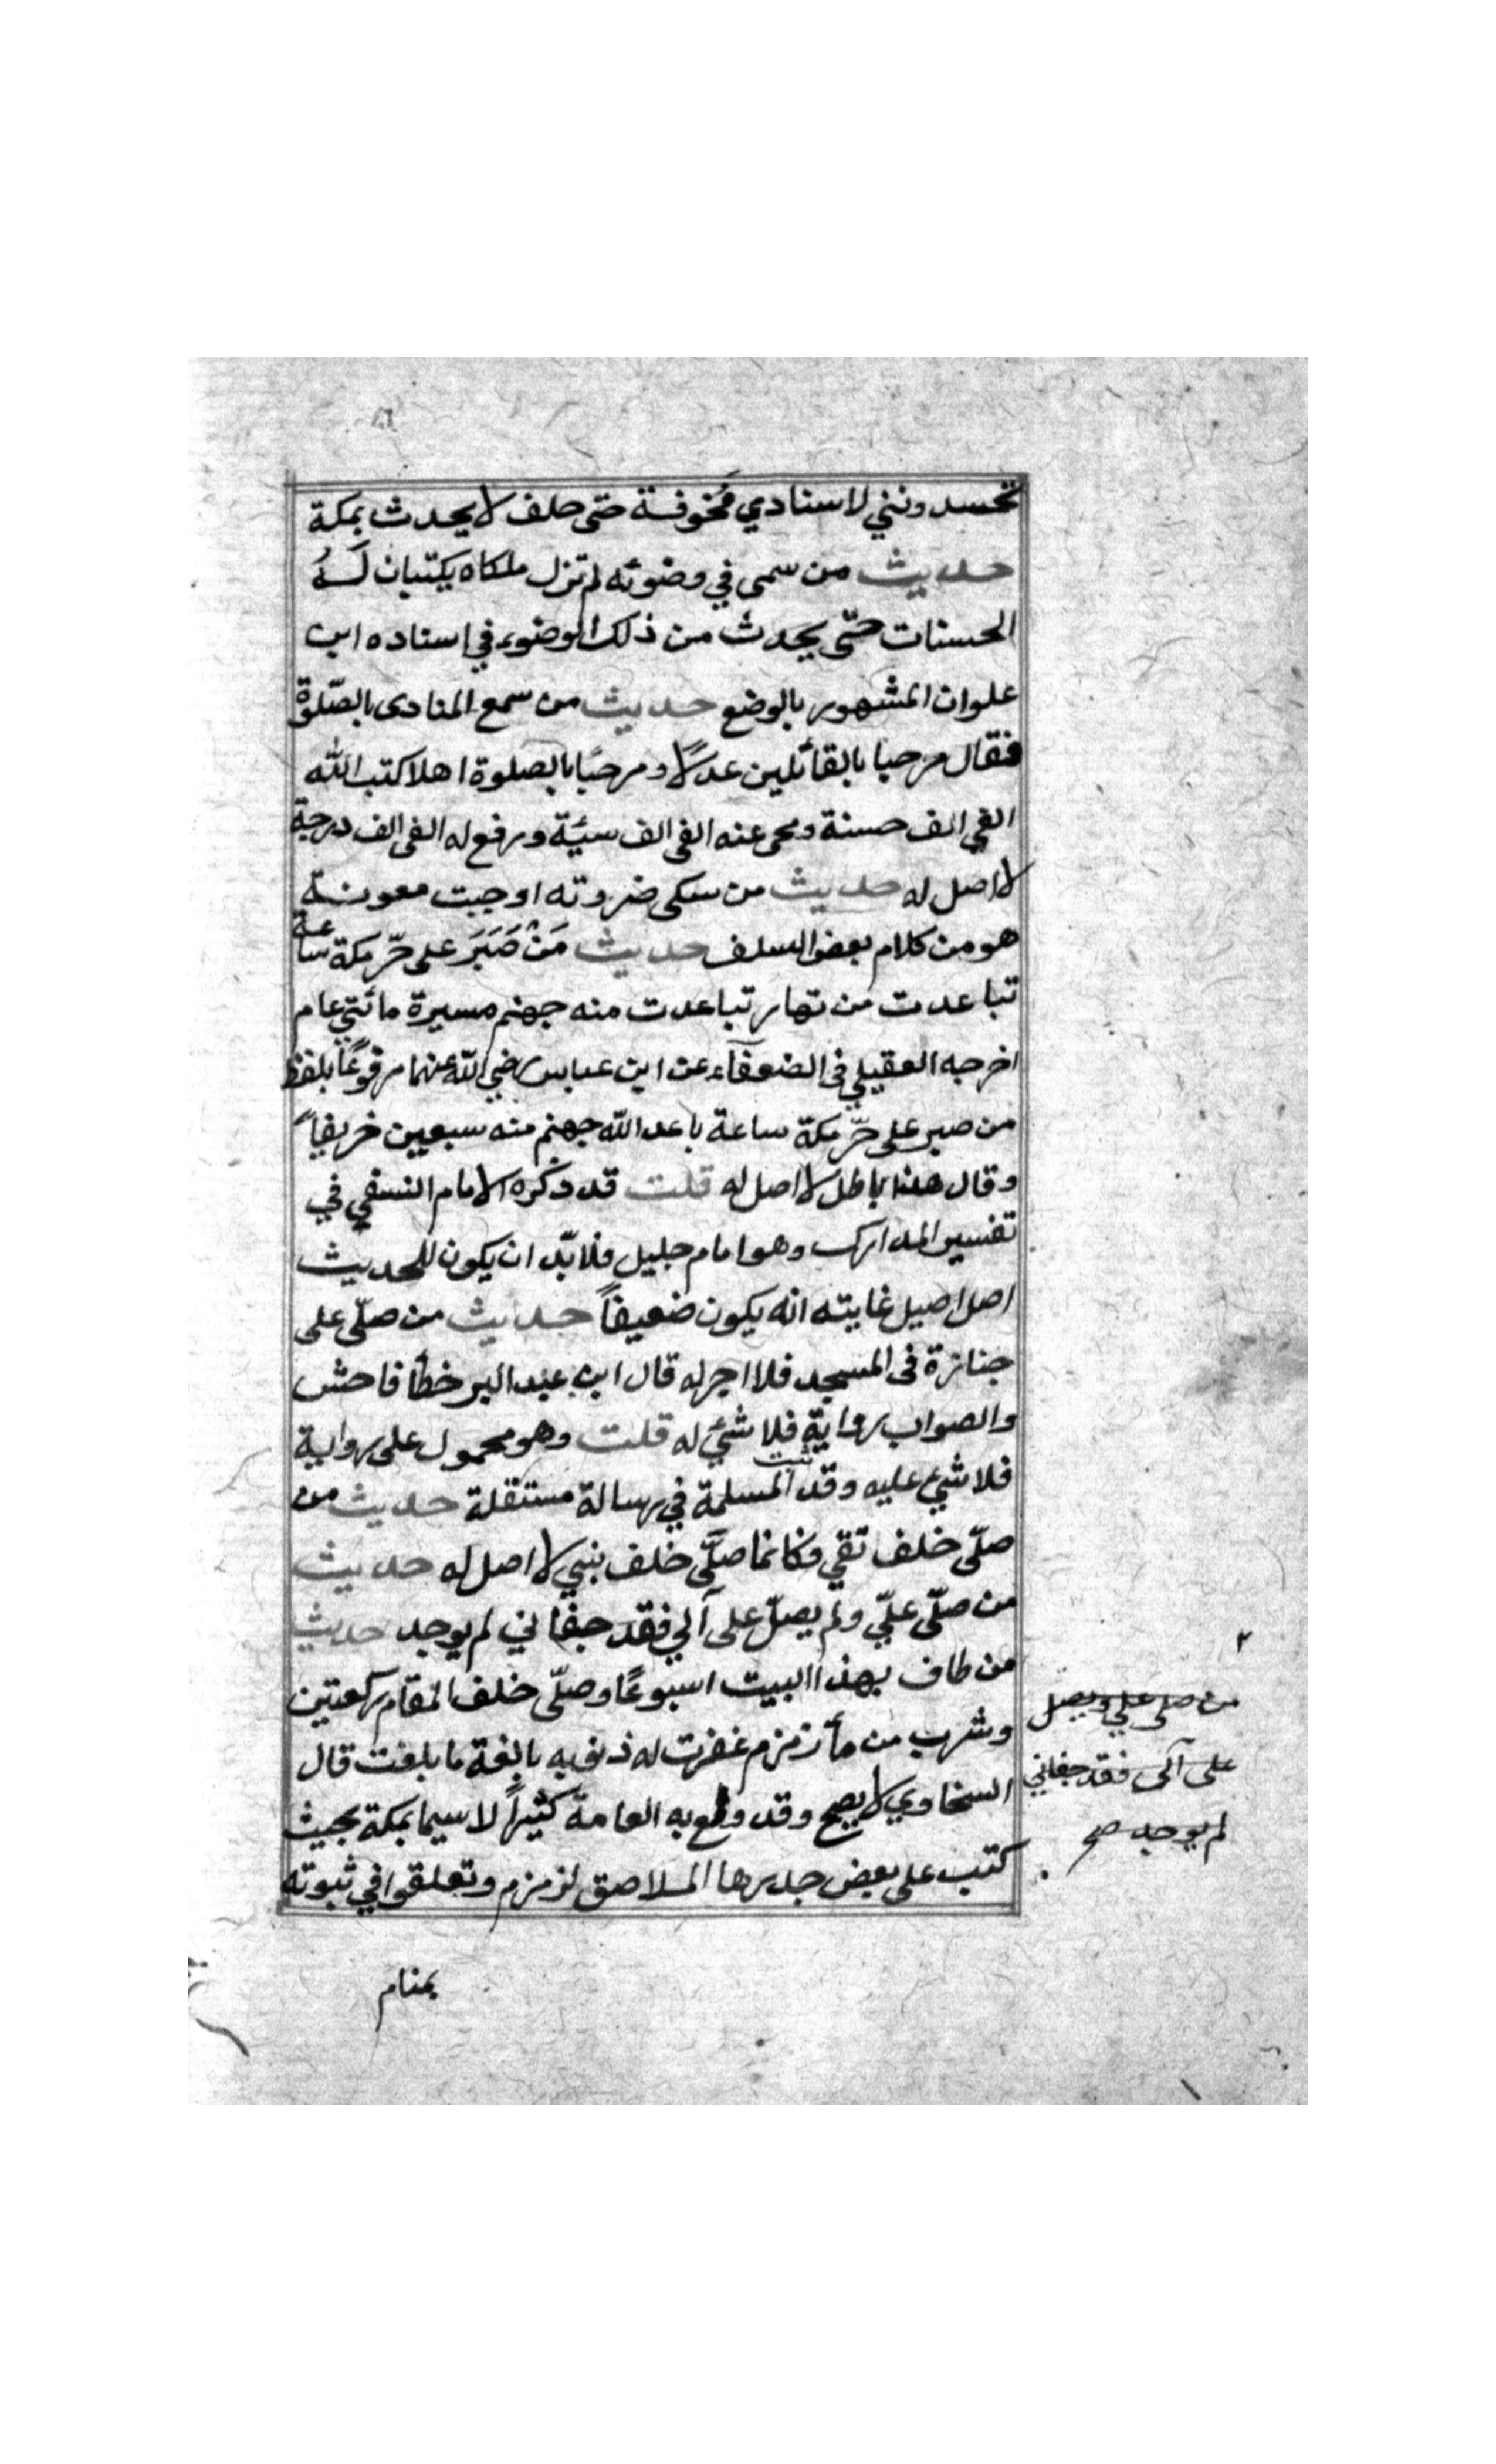 تحسدونني لاسنادي فخوفه حتى حلف لا يحدث بمكة
حديث من سمى في وضوئه لم تزل ملكاه يكتبان لَهُ
الحسنات حتّى يحدث من ذلك الوضوء في اسناده ابن
علوان المشهور بالوضع حديث من سمع المنادى بالصّلوة
فقال مرحبا بالقائلين عدلاً ومرحبًا بالصلوة اهلا كتب الله
الفي الف حسنة ومحى عنه الفى الف سيئة ورفع له الفى الف درجة
لا اصل له حديث من سكى ضروته اوجبت معونة
هو من كلام بعض السلف حديث مَنْ صَبَرَ على حرّ مكة ساعة
تباعدت من نهار تباعدت منه جهنم مسيرة مائتي عام
اخرجه العقيلي فى الضعفاء عن ابن عباس رضي الله عنهما مرفوعًا بلفظ
من صبر على حرّ مكة ساعة باعد الله جهنم منه سبعين خريفاً
وقال هذا باطل لا اصل له قلت قد ذكره الامام النسفي في
تفسير المدارك وهو امام جليل فلا بدّ ان يكون للحديث
اصل اصيل غايته انه يكون ضعيفاً حديث من صلّى على
جنازة فى المسجد فلا اجر له قال ابن عبد البر خطأ فاحش
والصواب رواية فلا شئ له قلت وهو محمول على رواية
فلا شئ عليه وقد المسلمة في رسالة مستقلة حديث من
صلّى خلف تقي فكانما صلّى خلف نبي لا اصل له حديث
من صلّى علّي ولم يصلّ على آلي فقد جفاني لم يوجد حديث
من طاف بهذا البيت اسبوعًا وصلّى خلف المقام ركعتين
وشرب من مآ زمزم غفرت له ذنوبه بالغة ما بلغت قال
السخاوي لا يصح وقد ولع به العامة كثيراً لا سيما بمكة بحيث
كتب على بعض جدرها الملاصق لزمزم وتعلقوا في ثبوته
من صلى علي ويصل
على آلى فقد جفاني
لم يوجد صح
بمنام